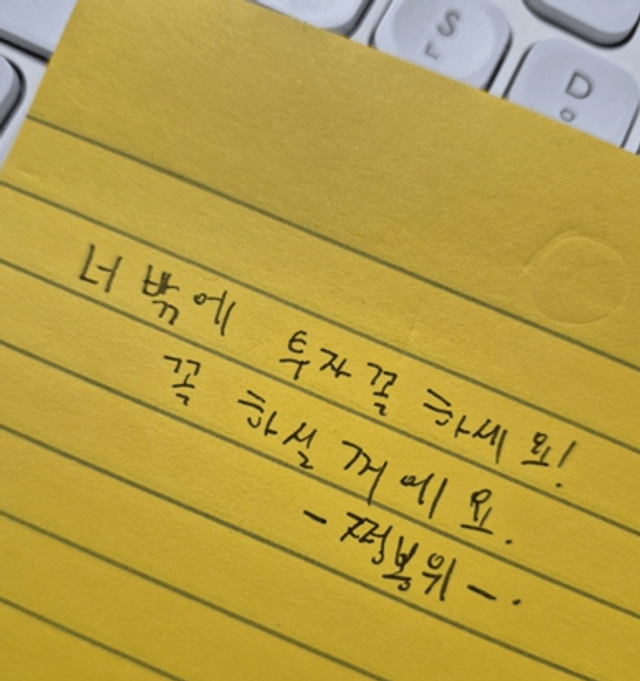 S
ㄴ
D
ㅇ
너 밖에 투자꼴 하세요!
꼴 하실 꺼에요.
- 정봉위 - .